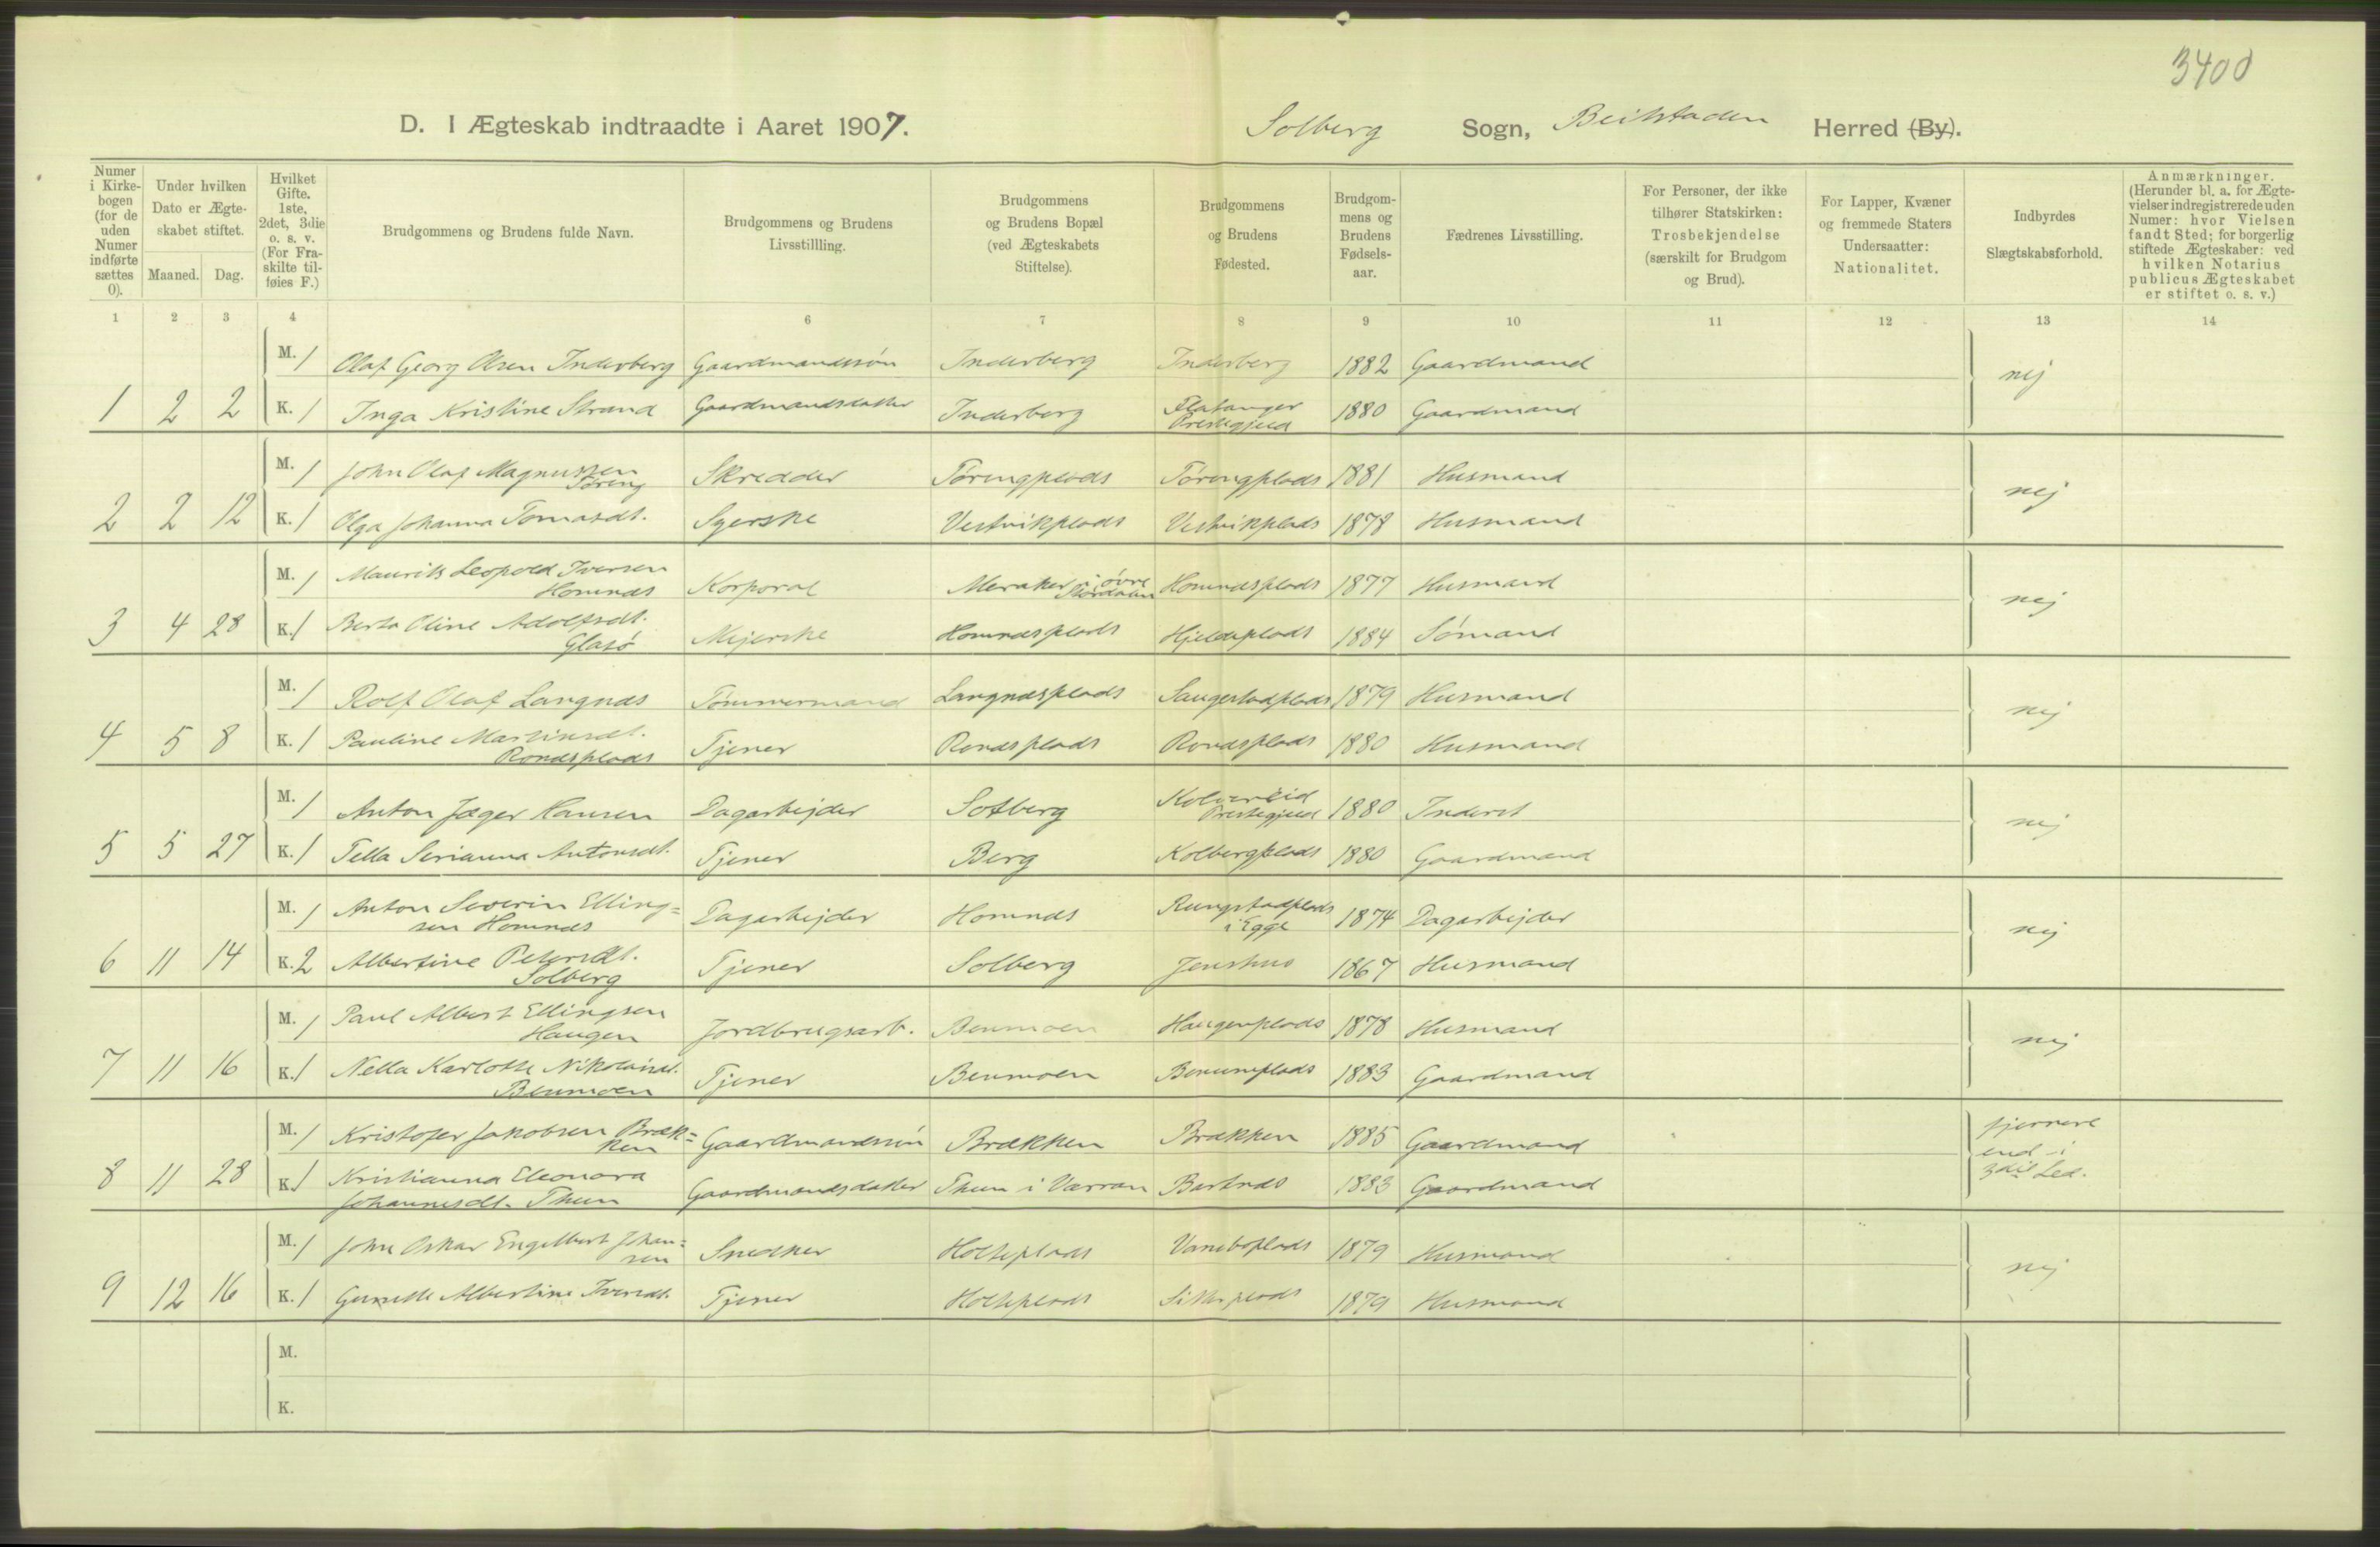 3400
D. I Ægteskab indtraadte i Aaret 1907. Solberg Sogn, Beitstaden Herred (By).
Numer i Kirkebogen (for de uden Numer indførte sættes 0).
Under hvilken Dato er Ægteskabet stiftet.
Maaned. Dag.
Hvilket Gifte. 1ste, 2det, 3die o. s. v. (For Fraskilte tilføies F.)
Brudgommens og Brudens fulde Navn.
Brudgommens og Brudens Livsstillling.
Brudgommens og Brudens Bopæl (ved Ægteskabets Stiftelse).
Brudgommens og Brudens Fødested.
Brudgommens og Brudens Fødselsaar.
Fædrenes Livsstilling.
For Personer, der ikke tilhører Statskirken: Trosbekjendelse (særskilt for Brudgom og Brud).
For Lapper, Kvæner og fremmede Staters Undersaatter: Nationalitet.
Indbyrdes Slægtskabsforhold.
Anmærkninger. (Herunder bl. a. for Ægtevielser indregistrerede uden Numer: hvor Vielsen fandt Sted; for borgerlig stiftede Ægteskaber: ved hvilken Notarius publicus Ægteskabet er stiftet o. s. v.)
1 2 3 4 6 7 8 9 10 11 12 13 14
M. 1 Olaf Georg Olsen Inderberg Gaardmandssøn Inderberg Inderberg 1882 Gaardmand nej
1 2 2 K. 1 Inga Kristine Strand Gaardmandsdatter Inderberg Flatanger Prestegjeld 1880 Gaardmand
M. 1 John Olaf Magnussen Tøring Skredder Tøringplads Tøringplads 1881 Husmand nej
2 2 12 K. 1 Olga Johanna Tomasdt. Syerske Vestvikplads Vestvikplads 1878 Husmand
M. 1 Maurits Leopold Iversen Homnæs Korporal Meraker i øvre Størdalen Homnæsplads 1877 Husmand nej
3 4 28 K. 1 Berta Oline Adolfsdt. Glasø Mejerske Homnæsplads Hjeldeplads 1884 Sømand
M. 1 Rolf Olaf Langnæs Tømmermand Langnæsplads Saugestadplads 1879 Husmand nej
4 5 8 K. 1 Pauline Martinsdt. Ronæsplads Tjener Ronæsplads Ronæsplads 1880 Husmand
M. 1 Anton Jæger Hansen Dagarbejder Solberg Kolvereid Prestegjeld 1880 Inderst nej
5 5 27 K. 1 Tella Serianna Antonsdt. Tjener Berg Kolbergplads 1880 Gaardmand
M. 1 Anton Severin Ellingsen Homnæs Dagarbejder Homnæs Rungstadplads i Egge 1874 Dagarbejder nej
6 11 14 K. 2 Albertine Petersdt. Solberg Tjener Solberg Jenshus 1867 Husmand
M. 1 Paul Albert Ellingsen Haugen Jordbrugsarb. Benmoen Haugenplads 1878 Husmand nej
7 11 16 K. 1 Nella Karlotte Nikolaisdt. Benmoen Tjener Benmoen Benumplads 1883 Gaardmand
M. 1 Kristofer Jakobsen Brækken Gaardmandssøn Brækken Brækken 1885 Gaardmand fjernere end i 3die Led.
8 11 28 K. 1 Kristianna Eleonora Johannesdt. Thun Gaardmandsdatter Thun i Værran Bartnæs 1883 Gaardmand
M. 1 John Oskar Engelbert Johansen Snedker Holteplads Vaneboplads 1879 Husmand nej
9 12 16 K. 1 Gunelle Albertine Iversdt. Tjener Holteplads 1879 Husmand
M.
K.